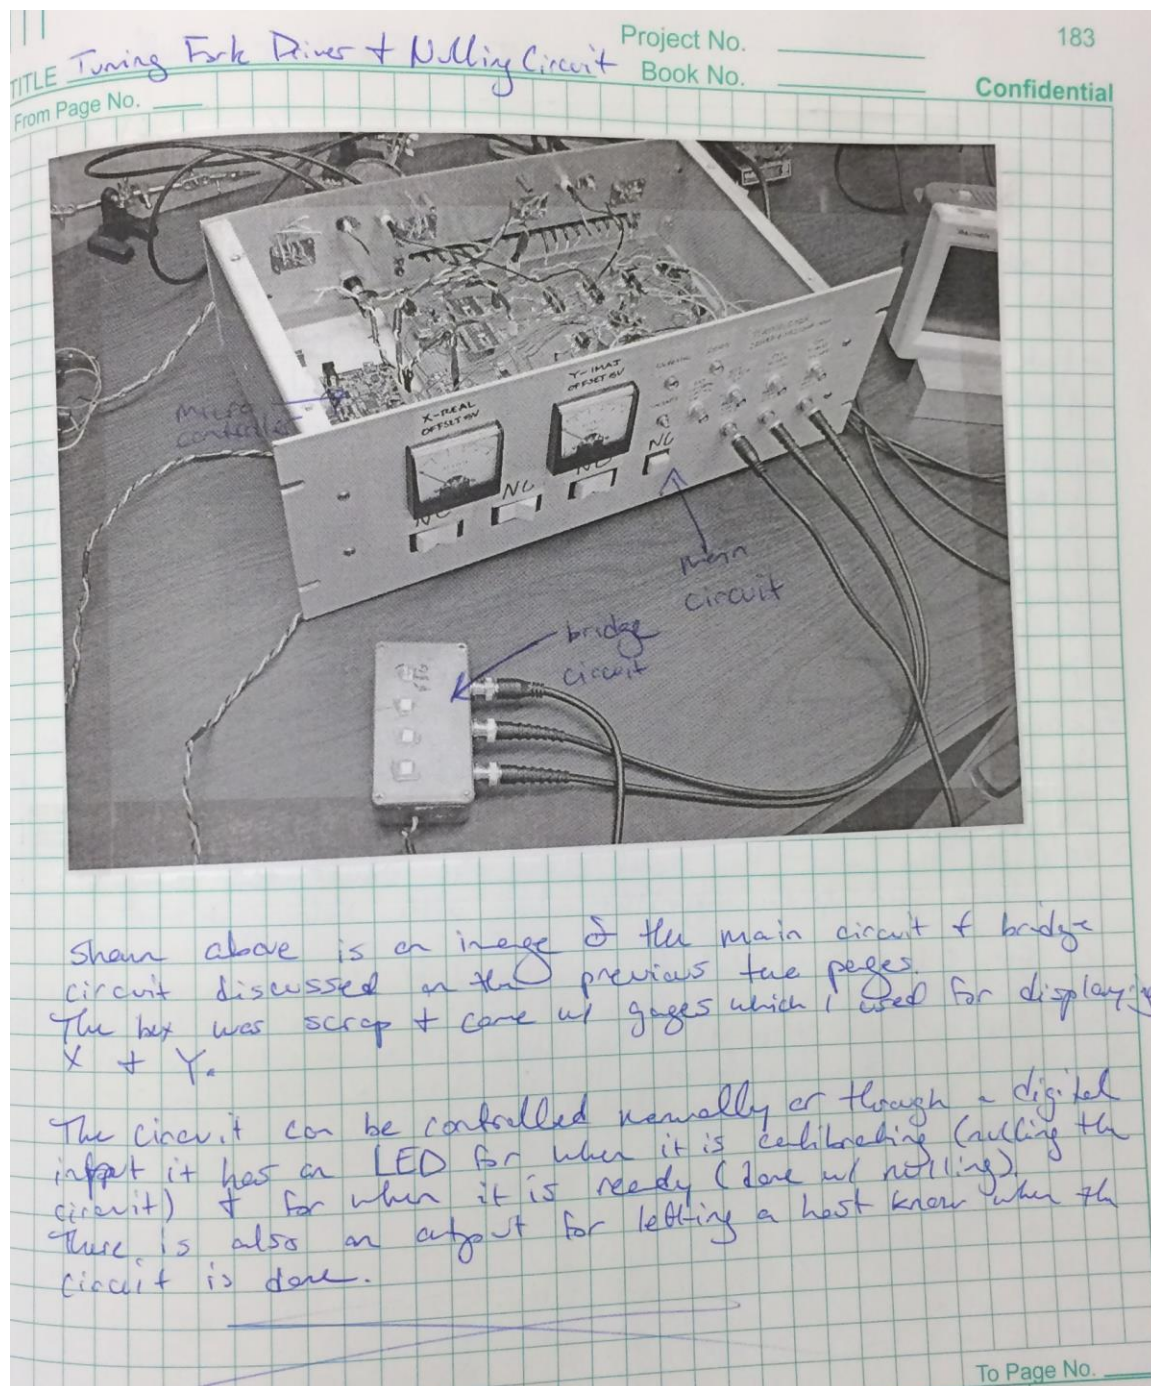 Project No.
183
TITLE Tuning Fork Driver + Nulling Circuit
Book No.
Confidential
From Page No.
X-REAL
OFFSET 5V
Y-IMAT
OFFSET 5V
micro
controller
NC
NC
NC
NC
main
circuit
bridge
circuit
Shown above is an image of the main circuit + bridge
circuit discussed on the previous two pages.
The box was scrap + came w/ gages which I used for displaying
X + Y.
The circuit can be controlled manually or through a digital
input it has an LED for when it is calibrating (nulling the
circuit) + for when it is ready (done w/ nulling)
There is also an output for letting a host know when the
circuit is done.
To Page No.